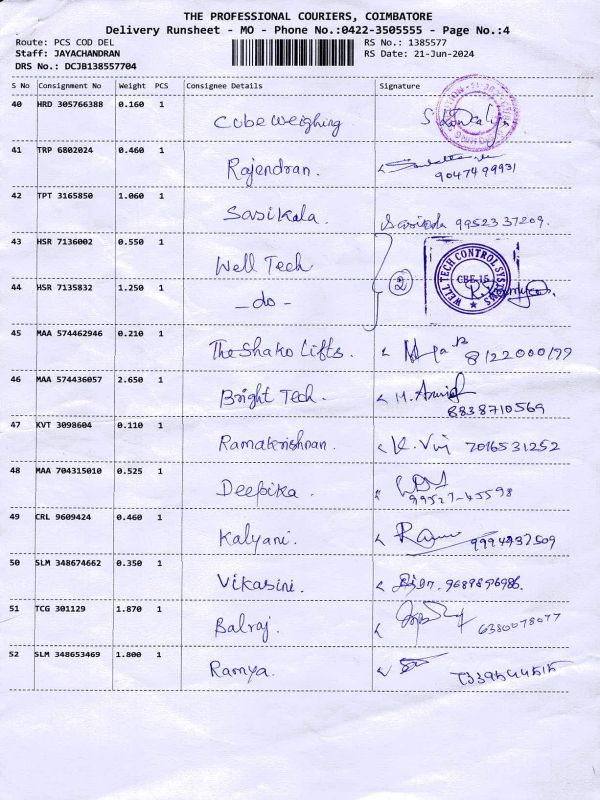 THE PROFESSIONAL COURIERS, COIMBATORE
Delivery Runsheet - MO - Phone No.:0422-3505555 - Page No.:4
Route: PCS COD DEL RS No.: 1385577
Staff: JAYACHANDRAN RS Date: 21-Jun-2024
DRS No.: DCJB138557704
S No Consignment No Weight PCS Consignee Details Signature
40 HRD 305766388 0.160 1
Cube Weighing
41 TRP 6802024 0.460 1
Rajendran.
9047499931
42 TPT 3165850 1.060 1
Sasikala. 9952337209.
43 HSR 7136002 0.550 1
Well Tech
WELL TECH CONTROL SYSTEMS
CBE-15
2
44 HSR 7135832 1.250 1
- do -
45 MAA 574462946 0.210 1
The Shako Lifts.
46 MAA 574436057 2.650 1
Bright Tech.
8838710569
47 KVT 3098604 0.110 1
Ramakrishnan. 7016531252
48 MAA 704315010 0.525 1
Deepika.
99527-45598
49 CRL 9609424 0.460 1
Kalyani.
50 SLM 348674662 0.350 1
Vikasini.
51 TCG 301129 1.870 1
Balraj.
6380078077
52 SLM 348653469 1.800 1
Ramya.